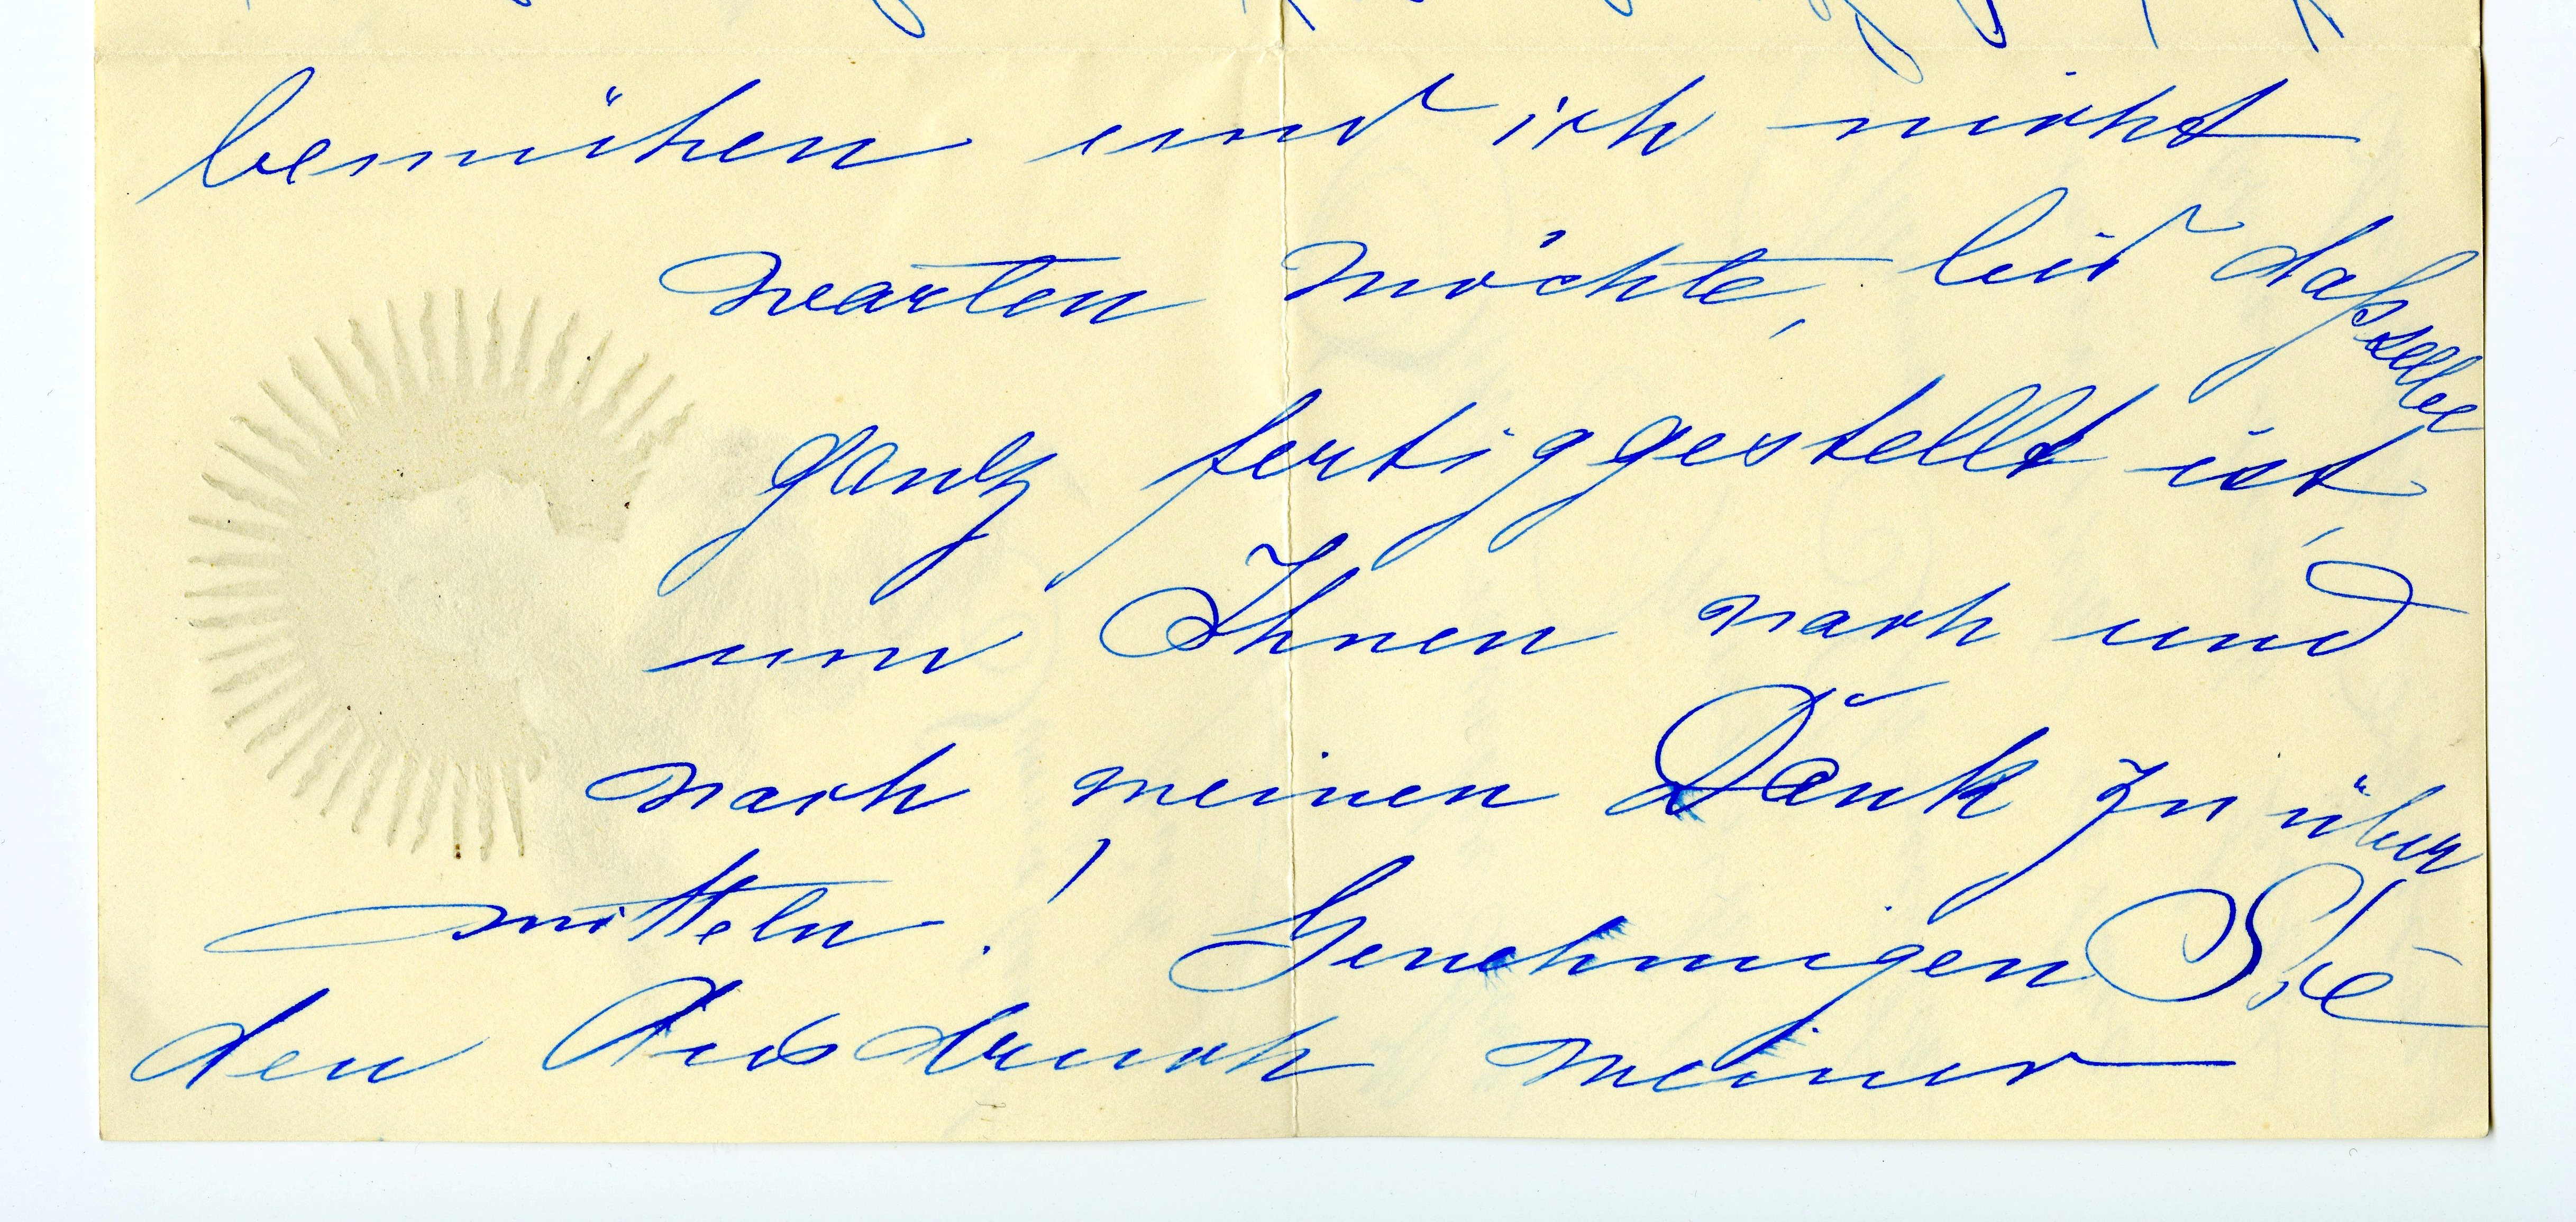 bemühen und ich nicht
warten möchte, bis daßselbe
ganz fertiggestellt ist,
um Ihnen nach und
nach meinen Dank zu über
mitteln! Genehmigen Sie
den Ausdruck meiner